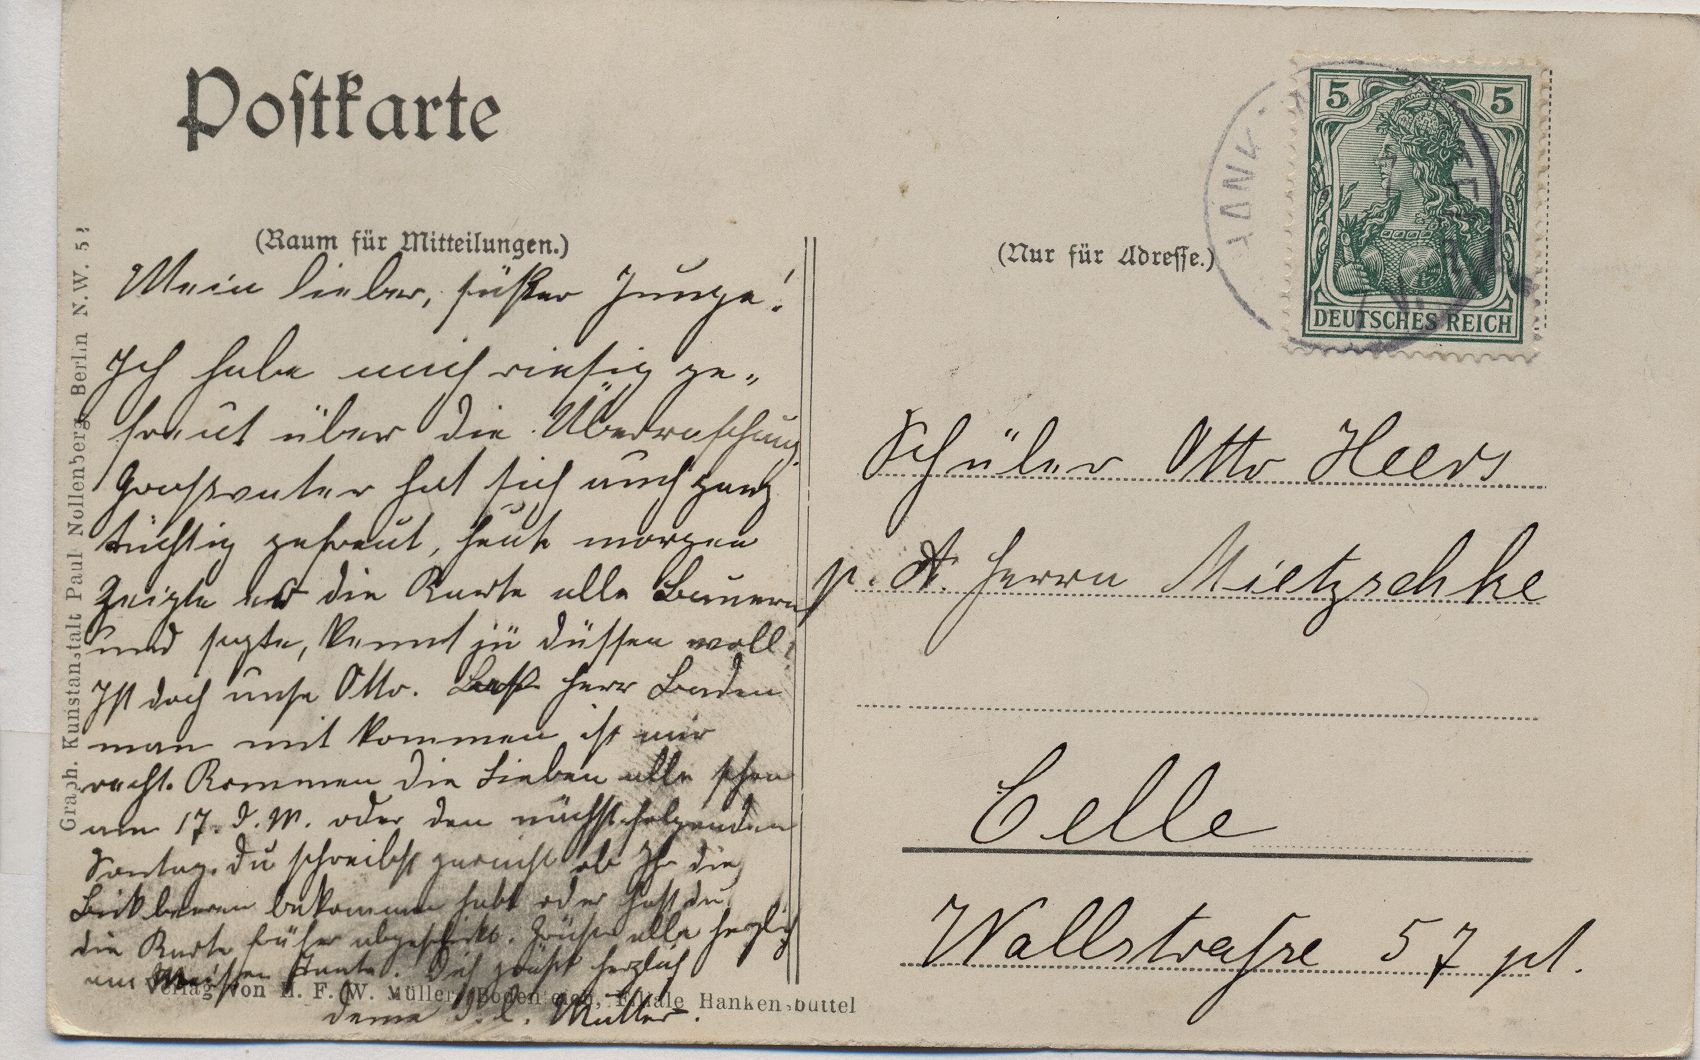 Postkarte
(Raum für Mitteilungen.)
Mein lieber, süßer Junge!
Ich habe mich riesig ge-
freut über die Überraschung.
Großvater hat sich auch ganz
tüchtig gefreut, heute morgen
zeigte er die Karte alle Bauern
und sagte, kennt jü düssen woll?
Ist doch unse Otto. Herr Baden
man mit kommen, ist mir
recht. Kommen die Lieben alle schon
am 17. d. M. oder den nächstfolgenden
Sontag. Du schreibst garnicht ob Ihr die
Bickbeeren bekommen habt oder hast du
die Karte früher abgeschickt. Grüße alle herzlich
Tante. Dich grüßt herzlich
Deine d. l. Mutter.
Graph. Kunstanstalt Paul Nollenberg, Berlin N.W. 52
Verlag von H. F. W. Müller, Bodenteich, Filiale Hankensbüttel
(Nur für Adresse.)
5 5
DEUTSCHES REICH
Schüler Otto Heers
p. A. Herrn Mietzschke
Celle
Wallstraße 57 pt.